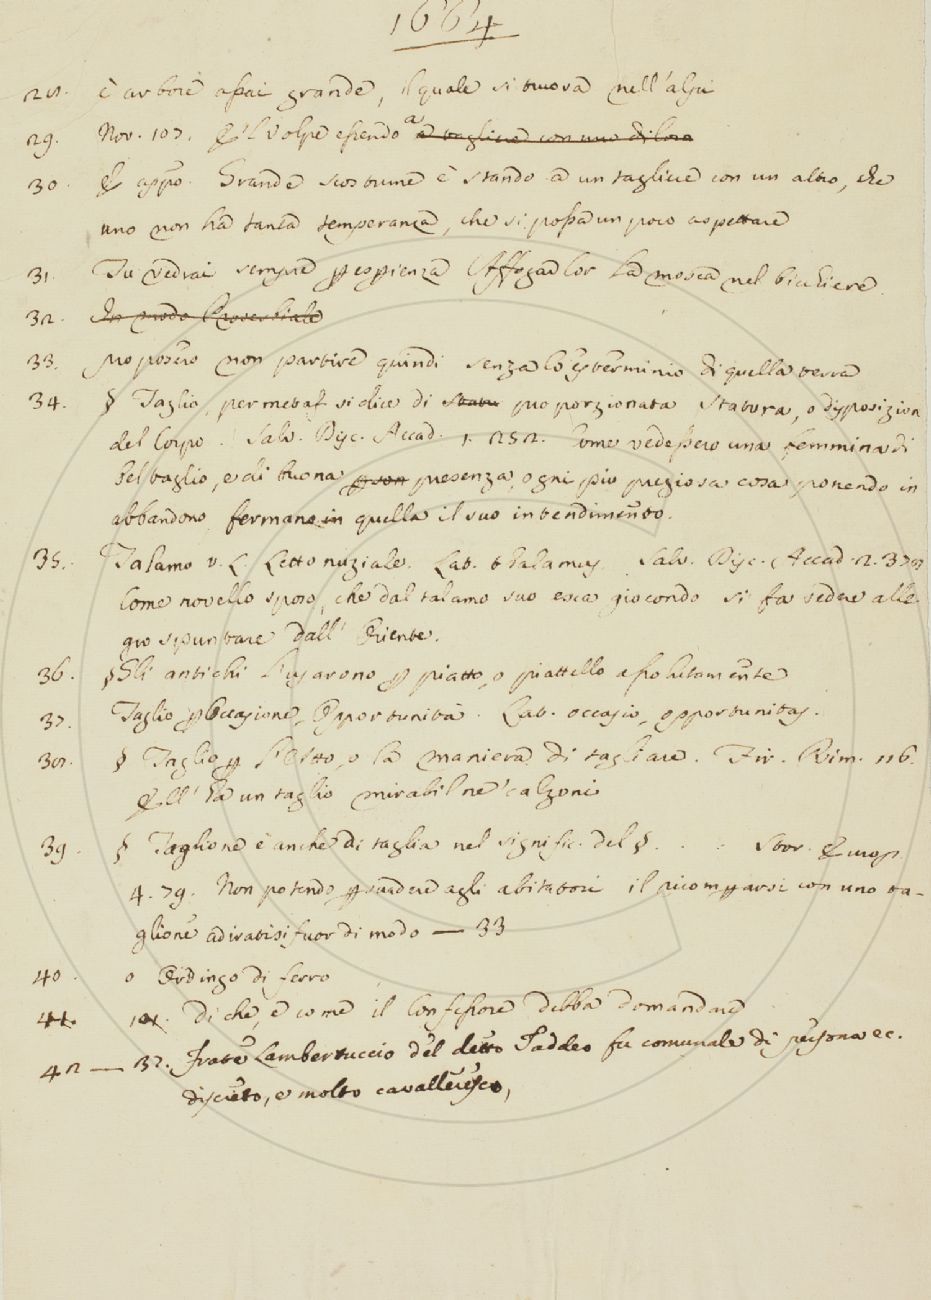 1664
28. è arbore assai grande, il quale si truova nell'alpi
29. Nov. 107. E'l Volpe essendo a a tagliere con uno di loro
30. E appo. Grande scostume è stando a un tagliere con un altro, che
uno non ha tanta temperanza, che si possa un poco aspettare
31. Tu vedrai sempre p esperienza Affogar lor la mosca nel bicchiere
32. In modo Proverbiale
33. proposero non partire quindi senza lo esterminio di quella terra
34. § Taglio, per metaf. si dice di statu proporzionata Statura, o disposizion
del Corpo. Salv. Disc. Accad. 1. 252. Come vedessero una femmina di
bel taglio, e di buona presenza, ogni più pregiosa cosa ponendo in
abbandono, fermano in quella il suo intendimento.
35. Talamo v. L. Letto nuziale. Lat. thalamus. Salv. Disc. Accad. 2.
Come novello sposo, che dal talamo suo esca giocondo si fa vedere alle-
gro spuntare dall' Oriente.
36. § Gli antichi l'usarono p piatto, o piattello assolutamente
37. Taglio p Occasione, Opportunità. Lat. occasio, opportunitas.
38. § Taglio p l'Atto, o la maniera di tagliare. Fir. Rim. 116.
Ell' ha un taglio mirabil ne' calzoni
39. § Taglione è anche di taglia nel signific. del §. . . Stor. Europ.
4. 79. Non potendo psuadere agli abitatori il ricompparsi con uno ta-
glione adiratisi fuor di modo — 33
40. o Ordingo di ferro
41. 121. Di che, e come il Confessore debba domandare
42 — 37. Frate Lambertuccio del detto Taddeo fu comunale di persona ec.
discreto, e molto cavalleresco,